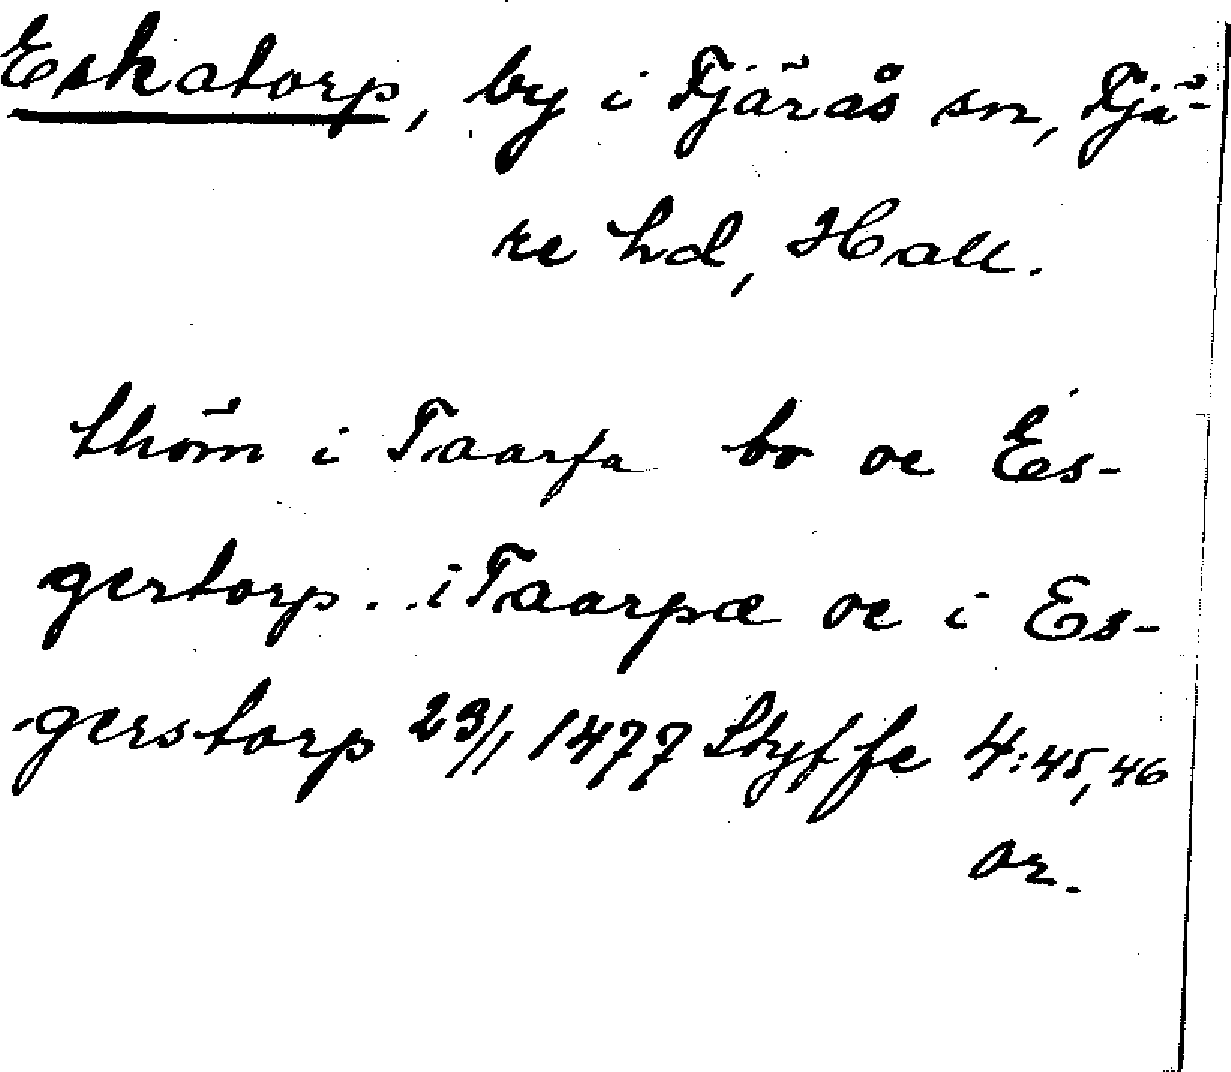 Eskatorp, by i Fjärås sn, Fjä-
re hd, Hall.
thöm i Taarfa bo oc Es-
gertorp. . i Taarpæ oc i Es-
gerstorp 23/1 1477 Styffe 4:45,46
or.